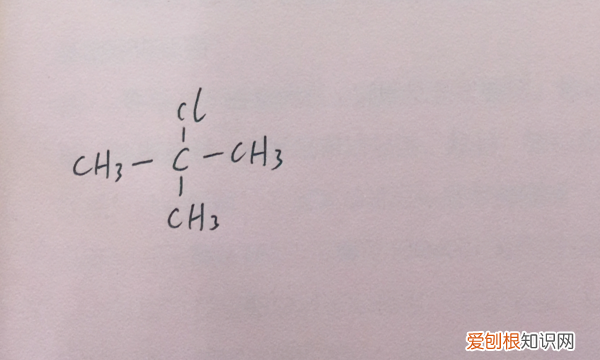 Cl
CH3 — C — CH3
CH3
爱刨根知识网